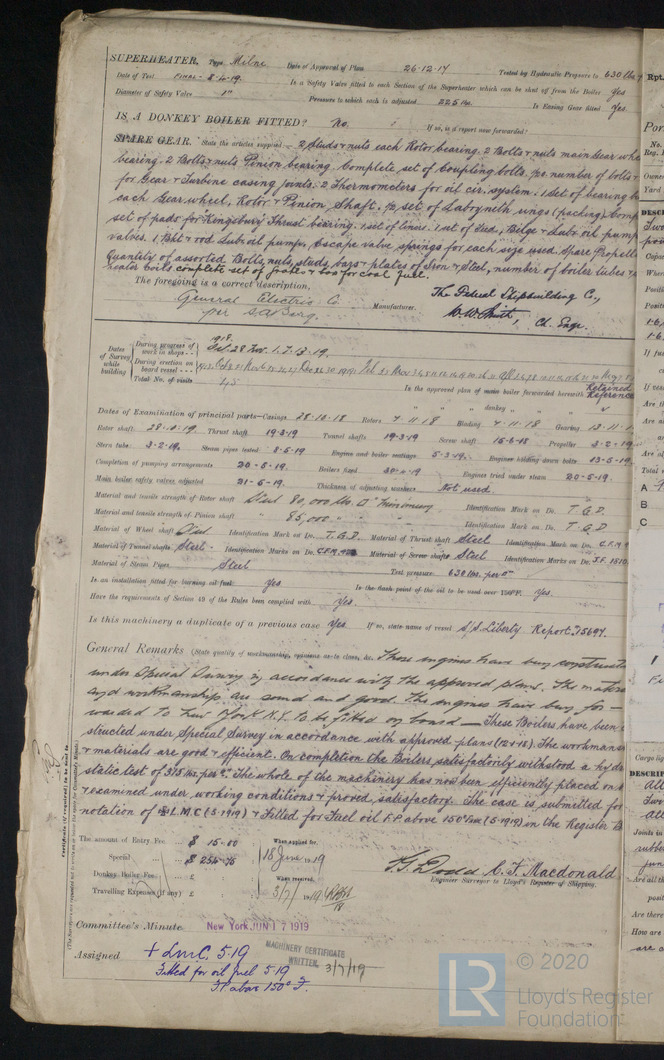 SUPERHEATER. Type Milne Date of Approval of Plan 26-12-17 Tested by Hydraulic Pressure to 630 lbs
Date of Test FINAL- 8-4-19. Is a Safety Valve fitted to each Section of the Superheater which can be shut off from the Boiler Yes
Diameter of Safety Valve 1" Pressure to which each is adjusted 225 lbs. Is Easing Gear fitted Yes
IS A DONKEY BOILER FITTED? No. If so, is a report now forwarded?
SPARE GEAR. State the articles supplied:— 2 Studs & nuts each Rotor bearing. 2 Bolts & nuts main Gear whe
bearing. 2 Bolts & nuts Pinion bearing. Complete set of Coupling bolts. number of bolts &
for Gear & Turbine casing joints. 2 Thermometers for oil cir. system. 1 Set of bearing b
each Gear wheel, Rotor & Pinion Shaft. ½ set of Labryneth rings (packing) Comp
set of pads for Kingsbury Thrust bearing. 1 set of liners. 1 set of Feed, Bilge & Lubr. oil pump
valves. 1 Bkt & rod Lub oil pump, Escape valve springs for each size used. Spare Propell
Quantity of assorted Bolts, nuts, studs, bars & plates of Iron & Steel, number of boiler tubes &
heater coils complete set of grate & bars for coal fuel.
The foregoing is a correct description,
General Electric Co The Federal Shipbuilding Co.,
per S.A. Berg. Manufacturer. W.W. Smith, Ch. Engr.
Dates of Survey while building
During progress of work in shops - - 1918. Feb. 28 Nov. 1. 7. 13. 19.
During erection on board vessel - - -
Total No. of visits 45
Is the approved plan of main boiler forwarded herewith Retained Reference
" " " donkey " " "
Dates of Examination of principal parts—Casings 28-10-18 Rotors 4-11-18 Blading 4-11-18 Gearing 13-11-1
Rotor shaft 28-10-19 Thrust shaft 19-3-19 Tunnel shafts 19-3-19 Screw shaft 15-6-18 Propeller 3-2-19
Stern tube 3-2-19. Steam pipes tested 8-5-19 Engine and boiler seatings 5-3-19. Engines holding down bolts 13-5-19
Completion of pumping arrangements 20-5-19. Boilers fixed 30-4-19 Engines tried under steam 20-5-19.
Main boiler safety valves adjusted 21-5-19. Thickness of adjusting washers Not used.
Material and tensile strength of Rotor shaft Steel 80,000 lbs. □" minimum Identification Mark on Do. T.G.D.
Material and tensile strength of Pinion shaft " 85,000 " " Identification Mark on Do. T.G.D
Material of Wheel shaft Steel Identification Mark on Do. T.G.D. Material of Thrust shaft Steel Identification Mark on Do. C.F.M
Material of Tunnel shafts Steel. Identification Marks on Do. C.F.M. Material of Screw shafts Steel Identification Marks on Do. J.F. 1510.
Material of Steam Pipes Steel Test pressure 630 lbs. per □"
Is an installation fitted for burning oil fuel Yes Is the flash point of the oil to be used over 150°F. Yes.
Have the requirements of Section 49 of the Rules been complied with Yes.
Is this machinery a duplicate of a previous case Yes If so, state name of vessel S/S. Liberty Report. 75697.
General Remarks (State quality of workmanship, opinions as to class, &c. These engines have been constructe
under Special Survey in accordance with the approved plans. The materia
and workmanship are sound and good. The engines have been for-
warded to New York N.Y. to be fitted on board — These Boilers have been
structed under Special Survey in accordance with approved plans. The workmans
& materials are good & efficient. On completion the Boilers satisfactorily withstood a hyd
static test of 315 lbs. per □". The whole of the machinery has now been efficiently placed on
& examined under working conditions & proved satisfactory. The case is submitted for
notation of L.M.C (5-1919) & Fitted for Fuel oil F.P. above 150° Fah (5-1919) in the Register B
The amount of Entry Fee .. $ 15.00 When applied for,
Special .. .. $ 254.75 18 June 1919
Donkey Boiler Fee .. £ When received,
Travelling Expenses (if any) £ 3/7/1919
T.G. Dodd C.F. Macdonald
Engineer Surveyor to Lloyd's Register of Shipping.
Committee's Minute New York JUN 17 1919
Assigned + LMC. 5.19
Fitted for oil fuel 5.19
F.P. above 150° F.
MACHINERY CERTIFICATE
WRITTEN. 3/7/19
Certificate (if required) to be sent to
(The Surveyors are requested not to write on or below the space for Committee's Minute.)
Rpt.
No.
Reg.
Owne
Yard
DESC
Two
If fu
A
B
C
Carge lig
DESCRIP
Joints in
Are all th
posit
Are there
How are
LR
© 2020
Lloyd's Register
Foundation